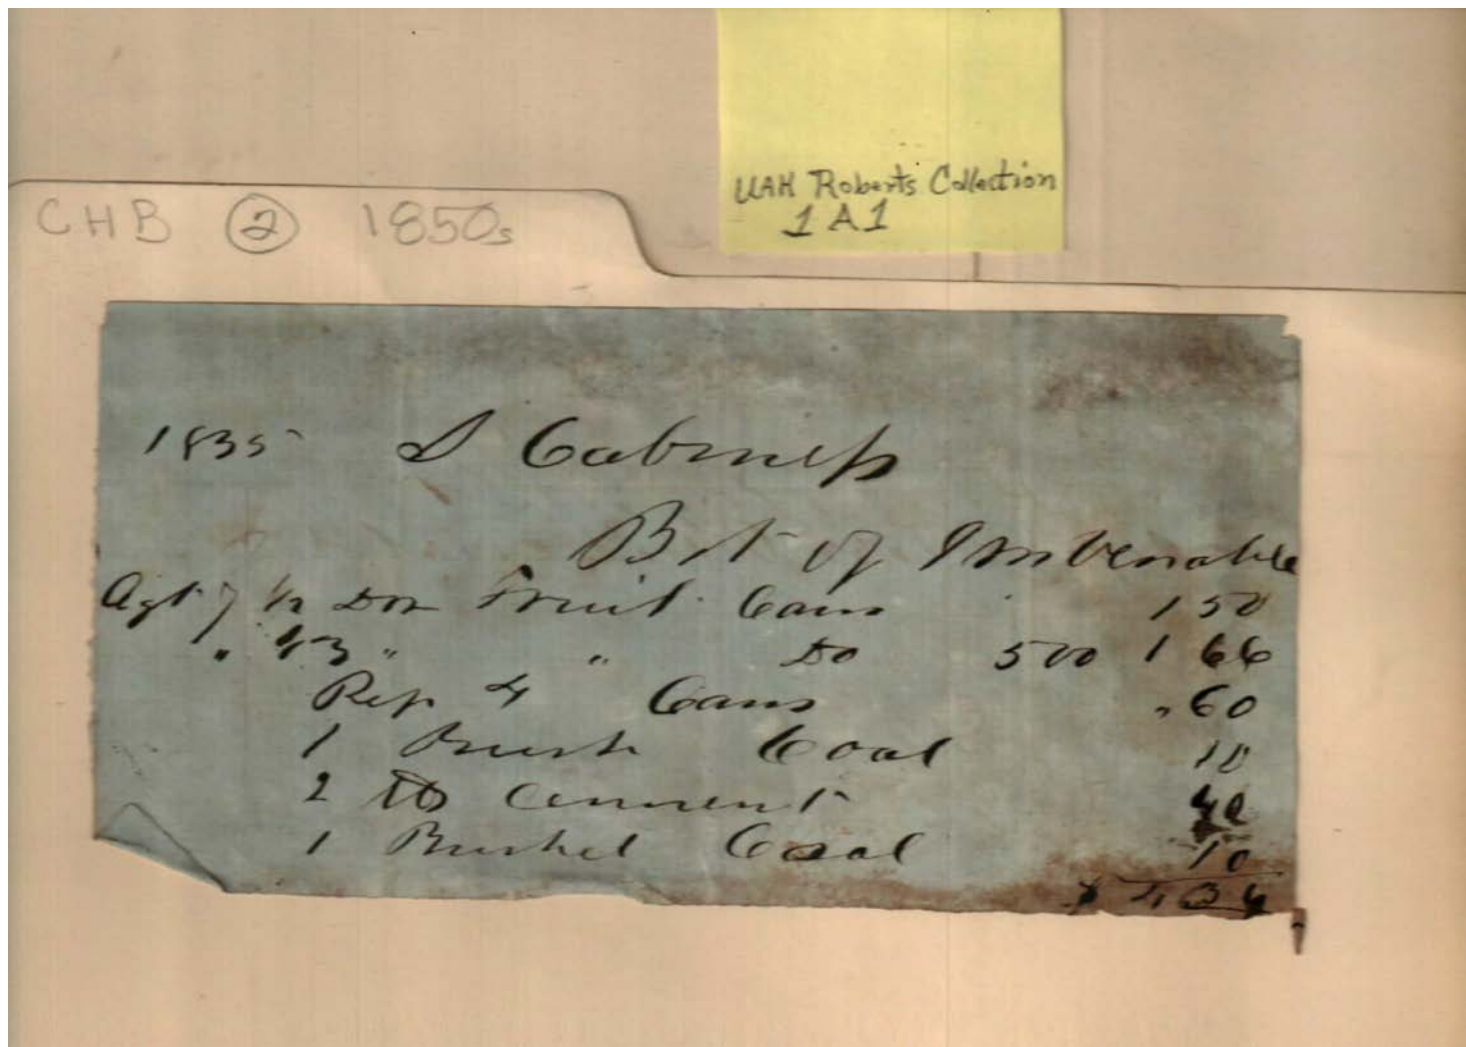 UAH Roberts Collection
1 A 1
CHB 2 1850s
1835 S Cabiness
Bot of Venable
7 1/2 Doz Fruit Cans 1 50
" 1/3 " " Do 500 1 66
Rep 4 Cans " 60
1 Bush Coal 10
2 lb Cement 40
1 Bushel Coal 10
$ 4 36